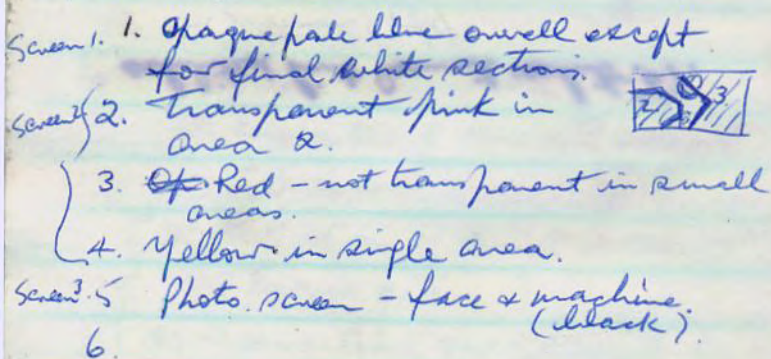 Screen 1. 1. Opaque pale blue overall except
for final white sections.
Screen 2 2. Transparent pink in
area 2.
2 3
3. Op. Red - not transparent in small
areas.
4. Yellow in single area.
Screen 3. 5 Photo. screen - face & machine.
(black).
6.